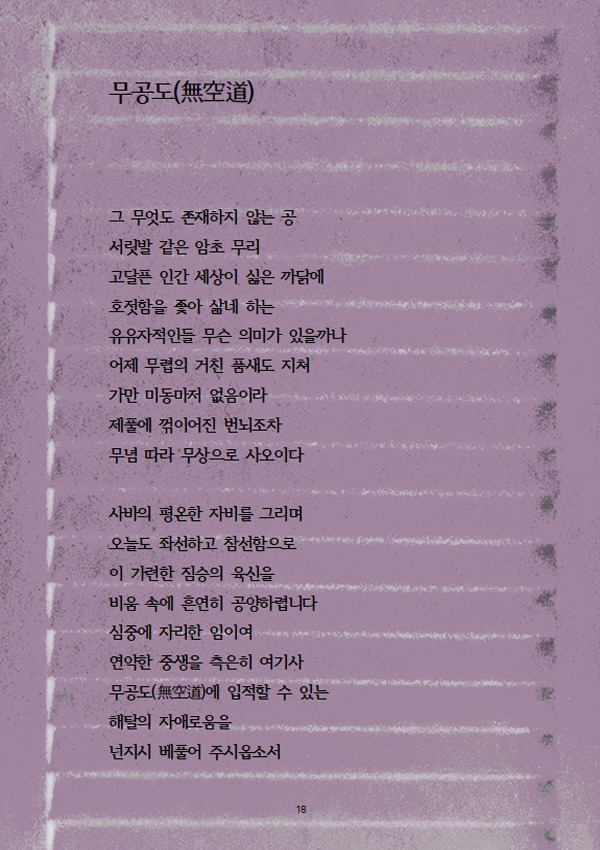 무공도(無空道)
그 무엇도 존재하지 않는 공
서릿발 같은 암초 무리
고달픈 인간 세상이 싫은 까닭에
호젓함을 좇아 삶네 하는
유유자적인들 무슨 의미가 있을까나
어제 무렵의 거친 품새도 지쳐
가만 미동마저 없음이라
제풀에 꺾이어진 번뇌조차
무념 따라 무상으로 사오이다
사바의 평온한 자비를 그리며
오늘도 좌선하고 참선함으로
이 가련한 짐승의 육신을
비움 속에 흔연히 공양하렵니다
심중에 자리한 임이여
연약한 중생을 측은히 여기사
무공도(無空道)에 입적할 수 있는
해탈의 자애로움을
넌지시 베풀어 주시옵소서
18